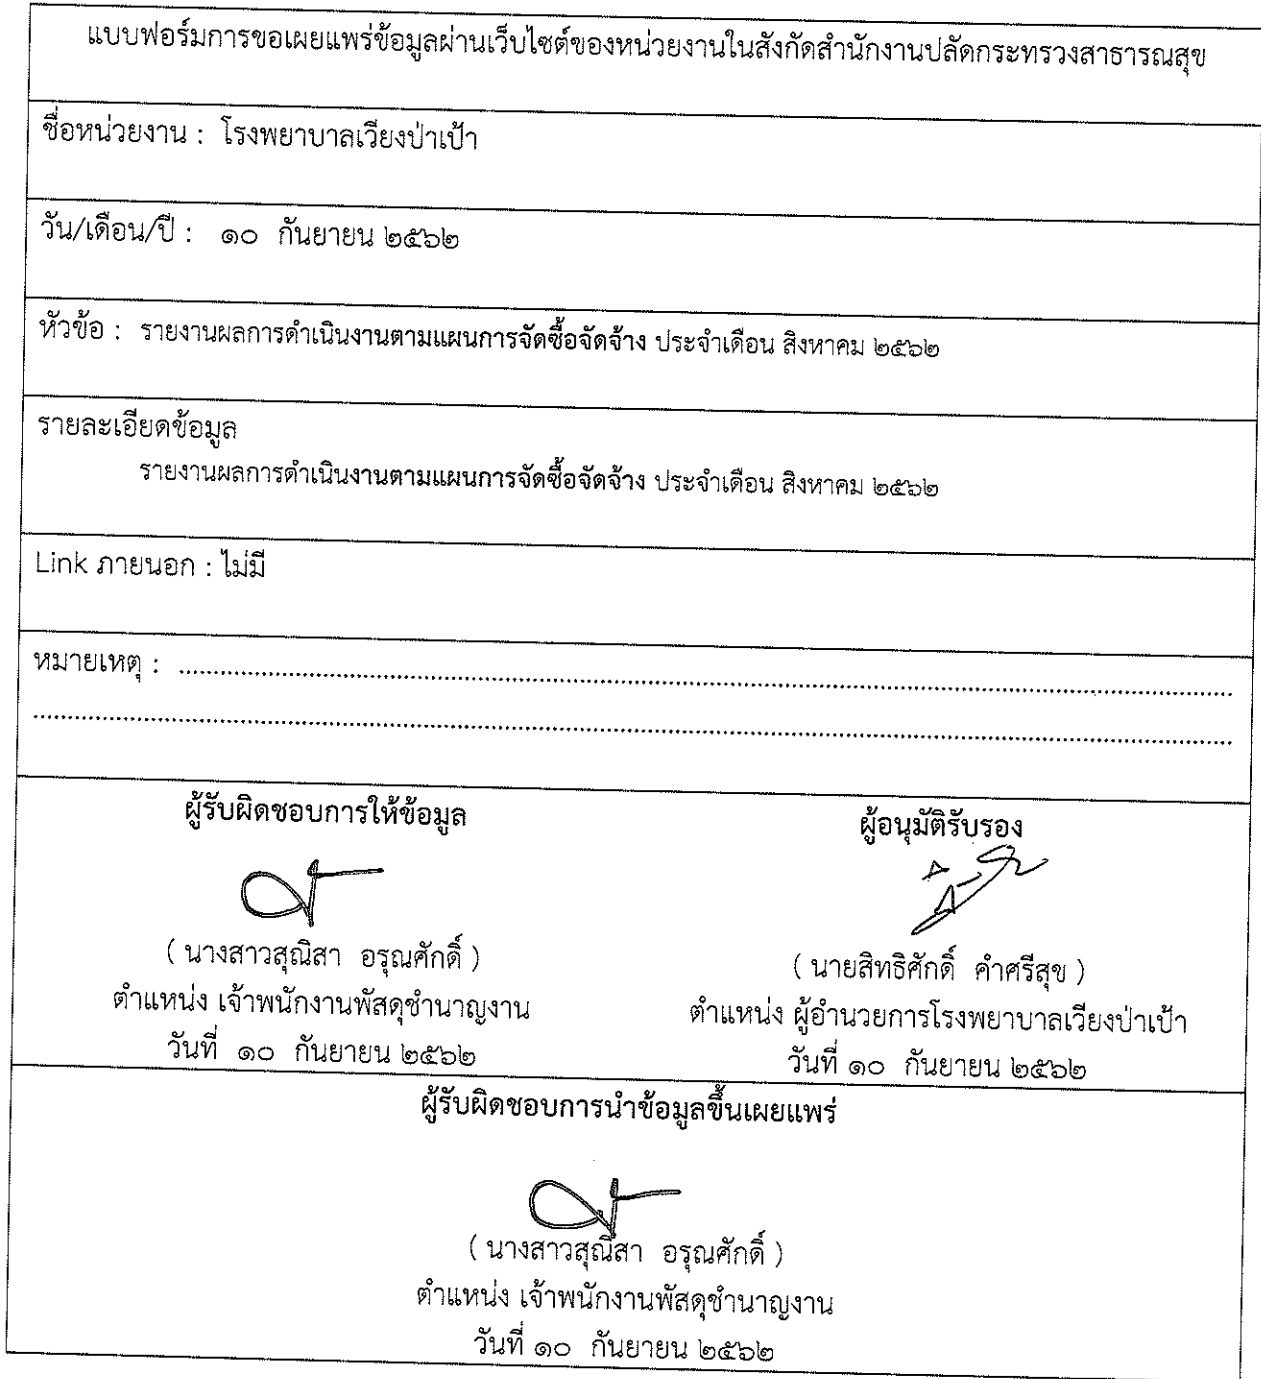 แบบฟอร์มการขอเผยแพร่ข้อมูลผ่านเว็บไซต์ของหน่วยงานในสังกัดสำนักงานปลัดกระทรวงสาธารณสุข
ชื่อหน่วยงาน : โรงพยาบาลเวียงป่าเป้า
วัน/เดือน/ปี : ๑๐ กันยายน ๒๕๖๒
หัวข้อ : รายงานผลการดำเนินงานตามแผนการจัดซื้อจัดจ้าง ประจำเดือน สิงหาคม ๒๕๖๒
รายละเอียดข้อมูล
รายงานผลการดำเนินงานตามแผนการจัดซื้อจัดจ้าง ประจำเดือน สิงหาคม ๒๕๖๒
Link ภายนอก : ไม่มี
หมายเหตุ : ........................................................................
........................................................................
ผู้รับผิดชอบการให้ข้อมูล
( นางสาวสุณิสา อรุณศักดิ์ )
ตำแหน่ง เจ้าพนักงานพัสดุชำนาญงาน
วันที่ ๑๐ กันยายน ๒๕๖๒
ผู้อนุมัติรับรอง
( นายสิทธิศักดิ์ คำศรีสุข )
ตำแหน่ง ผู้อำนวยการโรงพยาบาลเวียงป่าเป้า
วันที่ ๑๐ กันยายน ๒๕๖๒
ผู้รับผิดชอบการนำข้อมูลขึ้นเผยแพร่
( นางสาวสุณิสา อรุณศักดิ์ )
ตำแหน่ง เจ้าพนักงานพัสดุชำนาญงาน
วันที่ ๑๐ กันยายน ๒๕๖๒